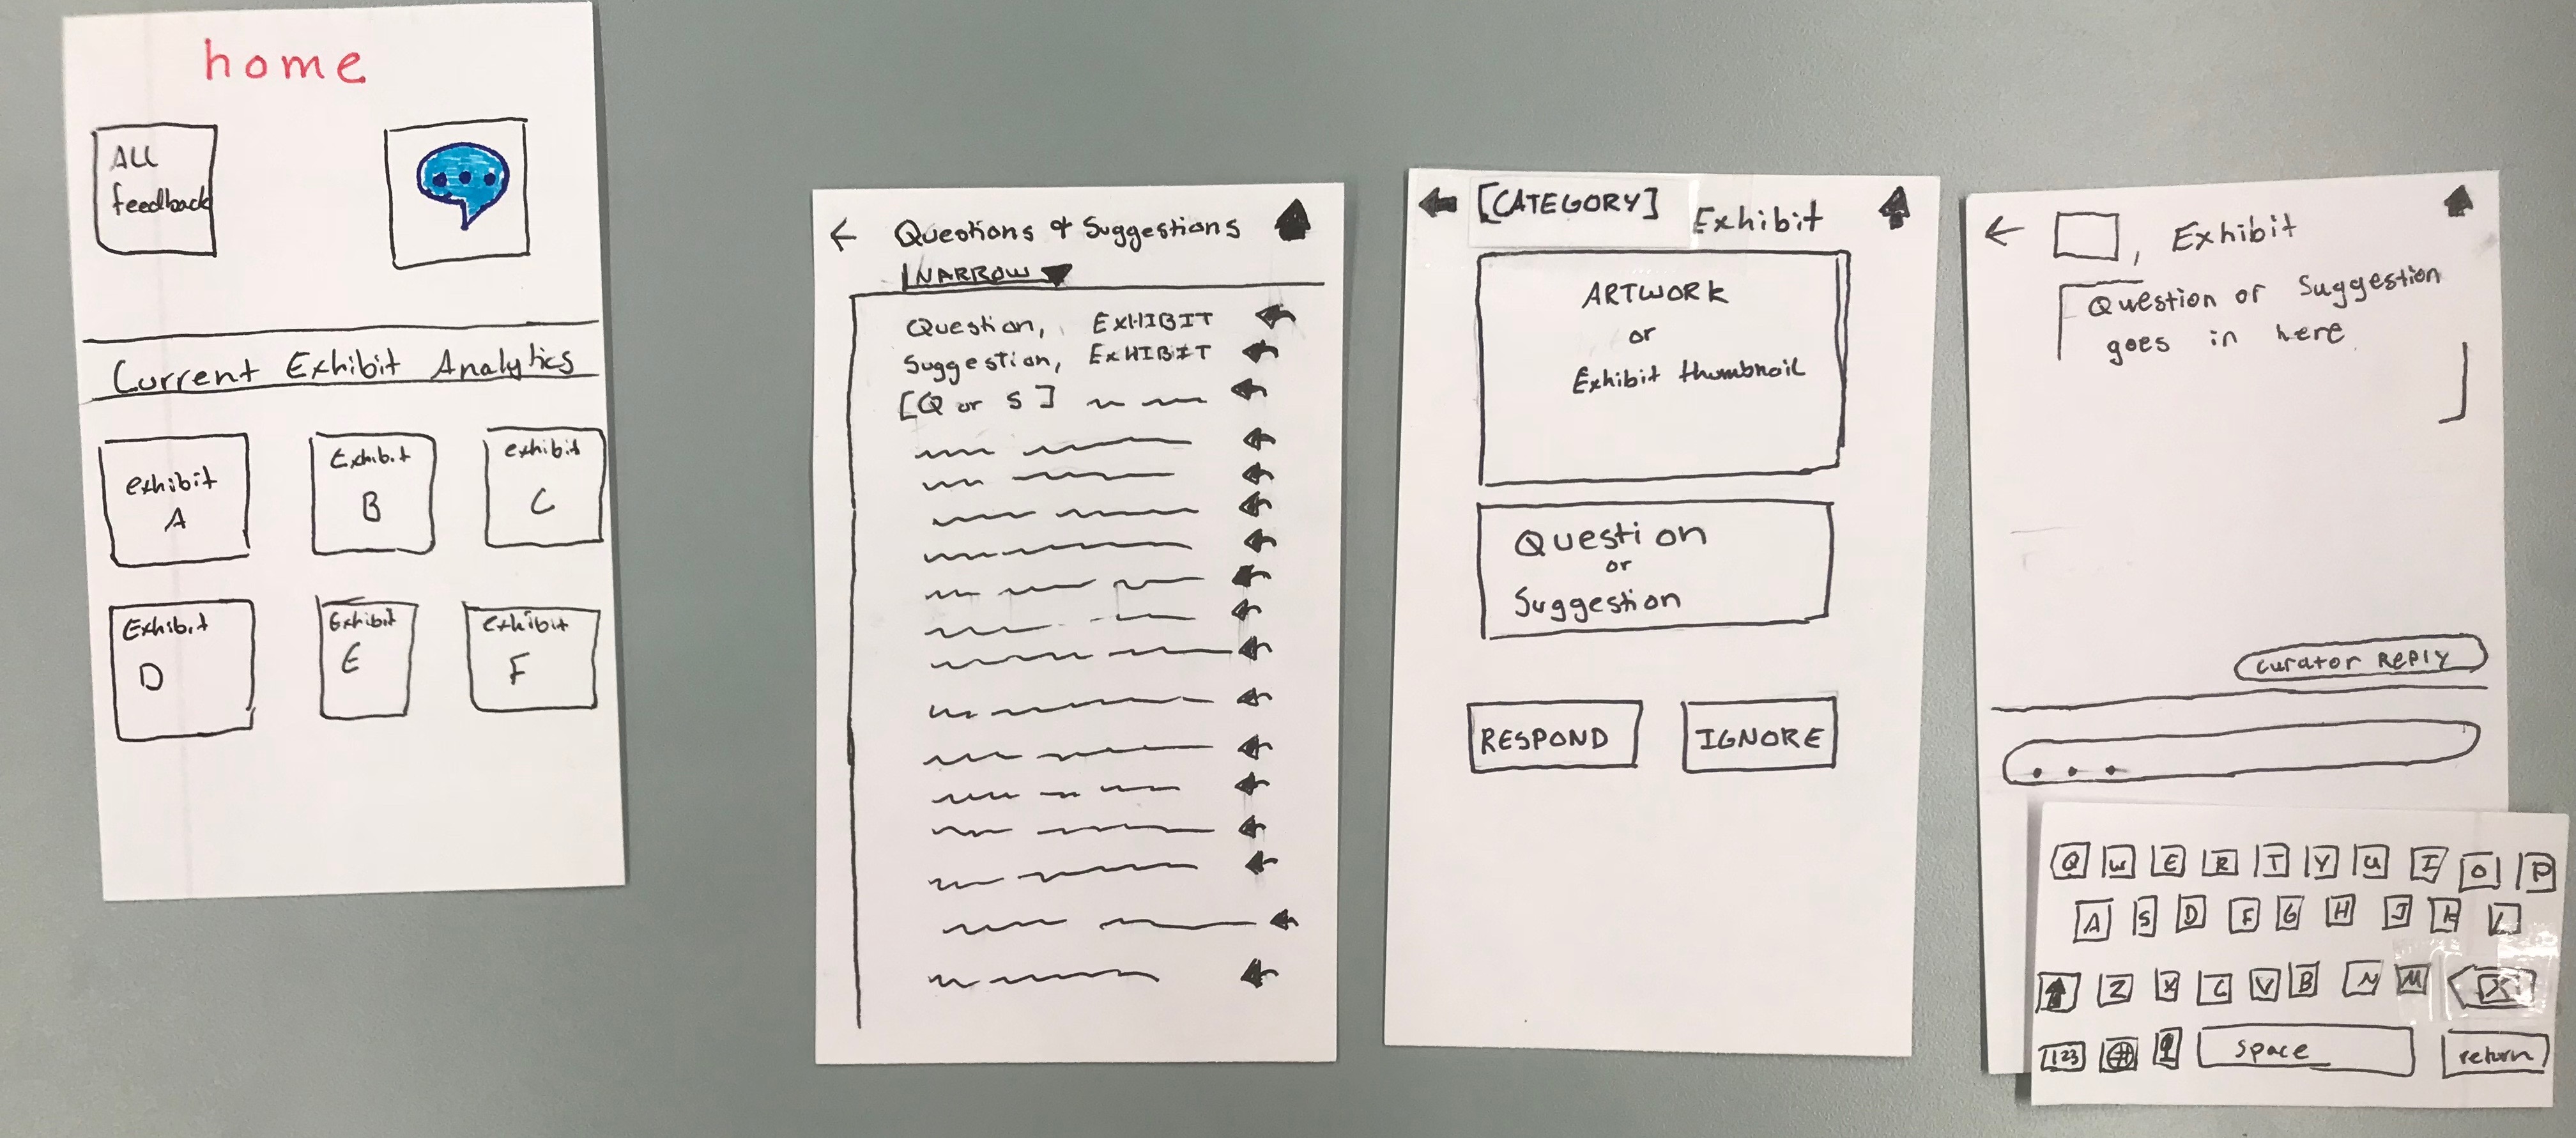 home
ALL
feedback
Current Exhibit Analytics
exhibit
A
Exhibit
B
exhibit
C
Exhibit
D
Exhibit
E
exhibit
F
Questions & Suggestions
NARROW
Question, EXHIBIT
Suggestion, EXHIBIT
[Q or S]
[CATEGORY] Exhibit
ARTWORK
or
Exhibit thumbnail
Question
or
Suggestion
RESPOND IGNORE
, Exhibit
Question or Suggestion
goes in here
Curator REPLY
...
Q W E R T Y U I O P
A S D F G H J K L
Z X C V B N M
123 space return